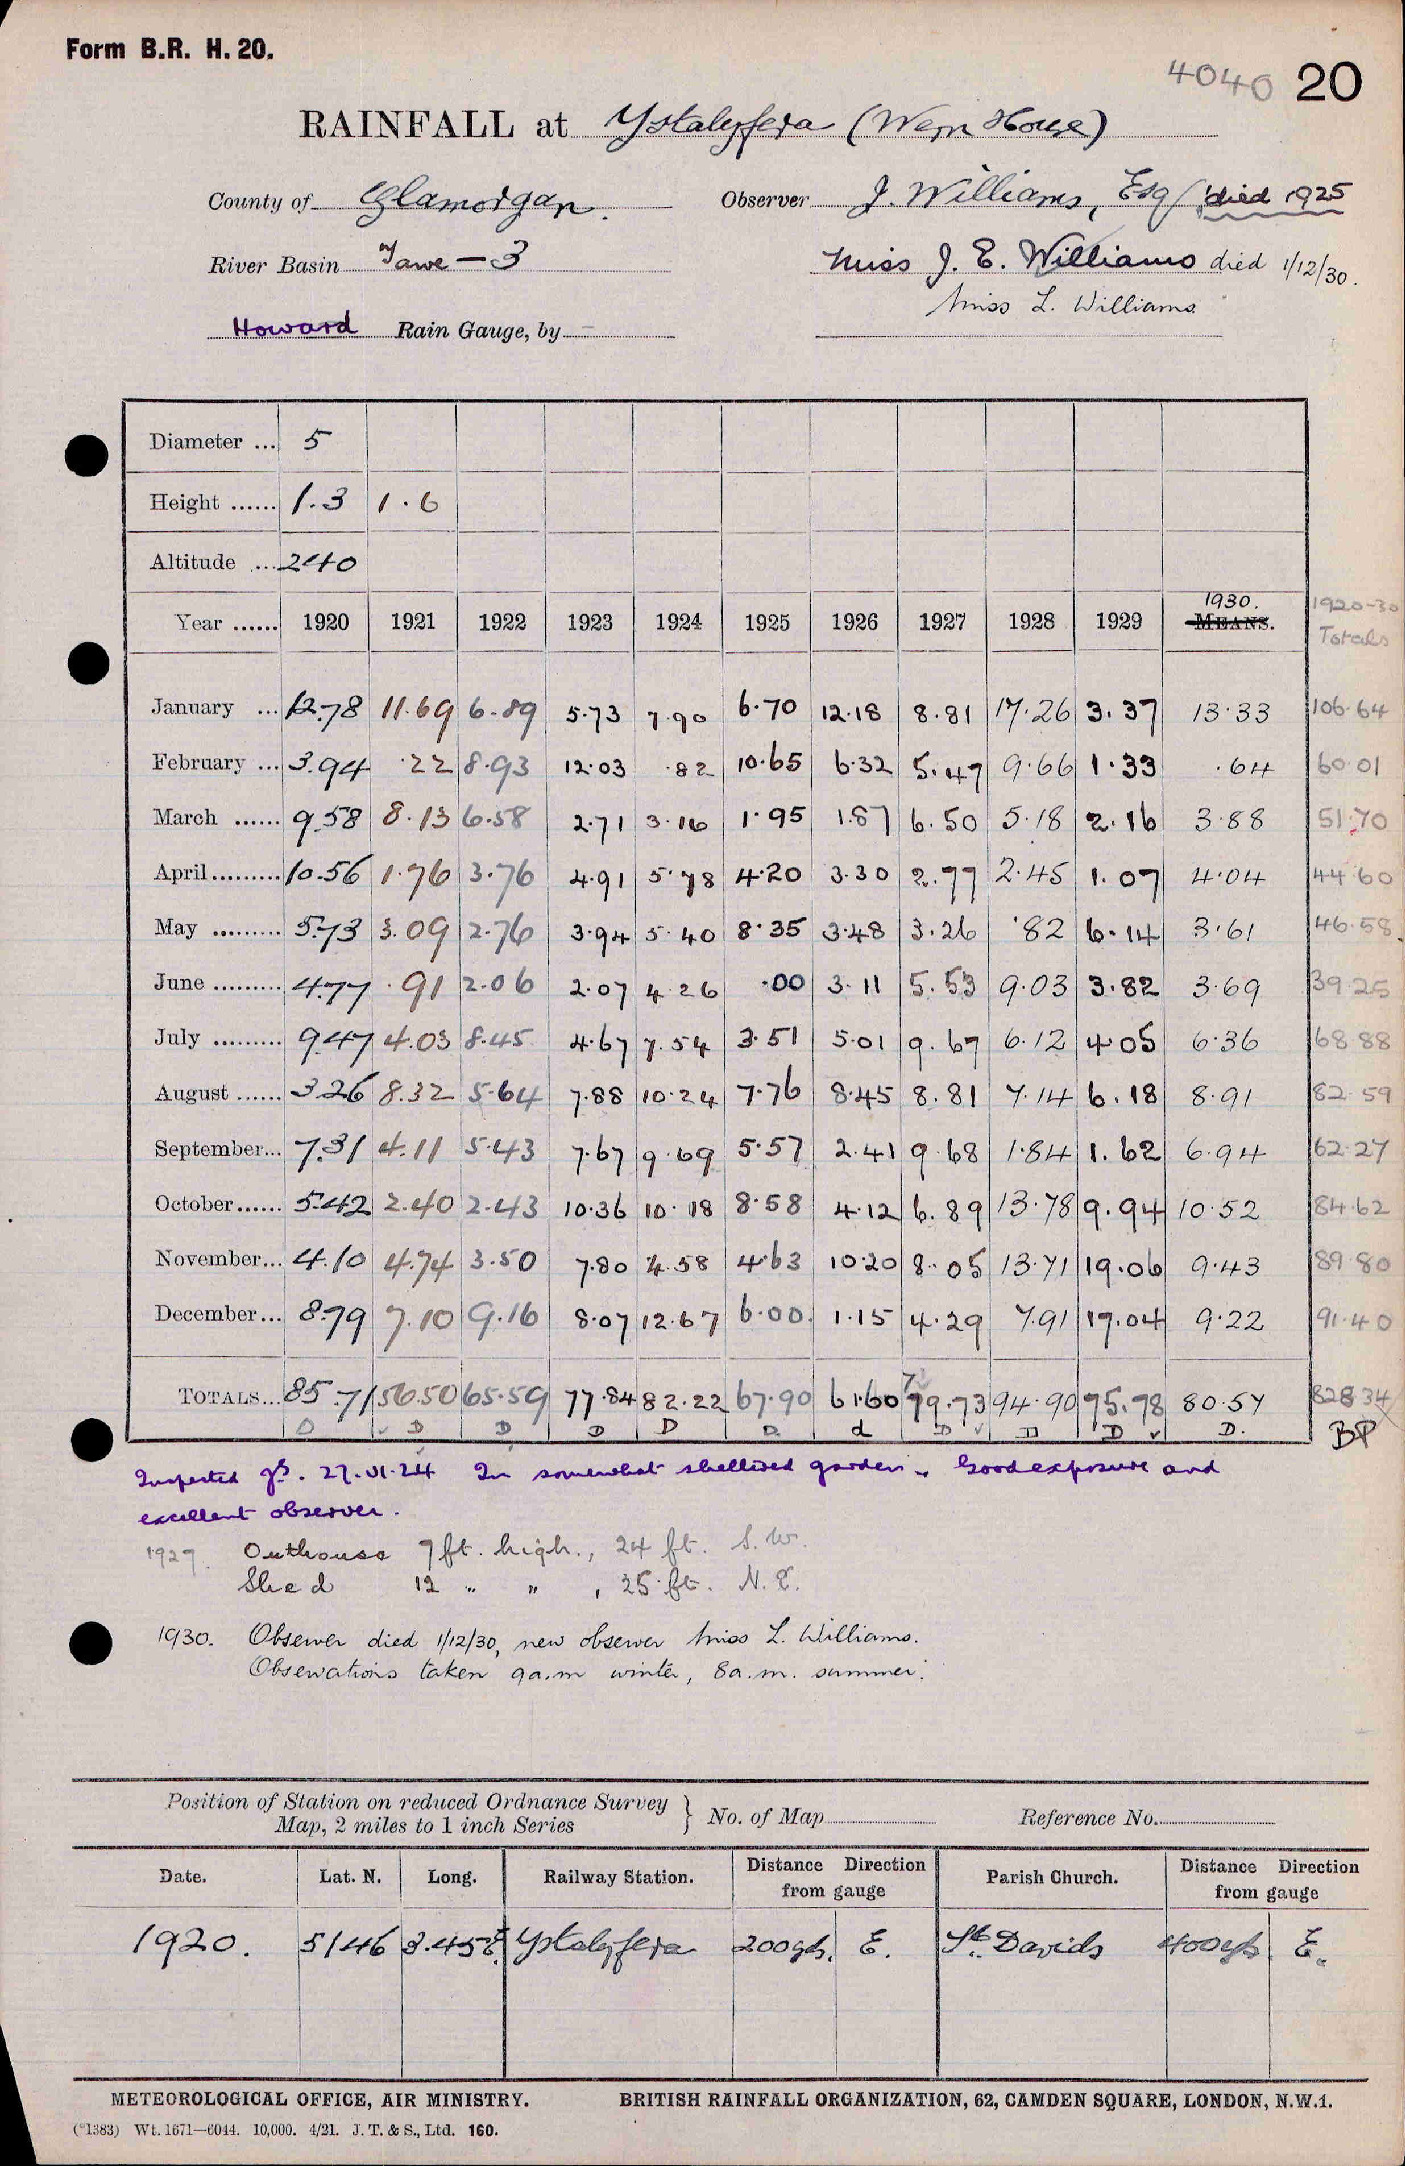 Form B.R. H. 20.
4040 20
RAINFALL at Ystalyfera (Wern House)
County of Glamorgan. Observer J. Williams, Esq (died 1925
River Basin Tawe - 3 Miss J. E. Williams died 1/12/30.
Miss L. Williams
Howard Rain Gauge, by -
Diameter ... 5
Height ...... 1.3 1.6
Altitude ... 240
Year ...... 1920 1921 1922 1923 1924 1925 1926 1927 1928 1929 1930. MEANS. 1920-30 Totals
January ... 12.78 11.69 6.89 5.73 7.90 6.70 12.18 8.81 17.26 3.37 13.33 106.64
February ... 3.94 .22 8.93 12.03 .82 10.65 6.32 5.47 9.66 1.33 .64 60.01
March ...... 9.58 8.13 6.58 2.71 3.16 1.95 1.87 6.50 5.18 2.16 3.88 51.70
April ......... 10.56 1.76 3.76 4.91 5.78 4.20 3.30 2.77 2.45 1.07 4.04 44.60
May ......... 5.73 3.09 2.76 3.94 5.40 8.35 3.48 3.26 .82 6.14 3.61 46.58
June ......... 4.77 .91 2.06 2.07 4.26 .00 3.11 5.53 9.03 3.82 3.69 39.25
July ......... 9.47 4.03 8.45 4.67 7.54 3.51 5.01 9.67 6.12 4.05 6.36 68.88
August ...... 3.26 8.32 5.64 7.88 10.24 7.76 8.45 8.81 7.14 6.18 8.91 82.59
September... 7.31 4.11 5.43 7.67 9.69 5.57 2.41 9.68 1.84 1.62 6.94 62.27
October...... 5.42 2.40 2.43 10.36 10.18 8.58 4.12 6.89 13.78 9.94 10.52 84.62
November... 4.10 4.74 3.50 7.80 4.58 4.63 10.20 8.05 13.71 19.06 9.43 89.80
December... 8.79 7.10 9.16 8.07 12.67 6.00 1.15 4.29 7.91 17.04 9.22 91.40
TOTALS... 85.71 56.50 65.59 77.84 82.22 67.90 61.60 79.73 94.90 75.78 80.57 828.34
D D D D D D d D D D D. BP
Inspected 27.VI.24 In somewhat sheltered garden. Good exposure and
excellent observer.
1927. Outhouse 7 ft. high., 24 ft. S.W.
Shed 12 " " , 25 ft. N.E.
1930. Observer died 1/12/30, new observer Miss L. Williams.
Observations taken 9a.m winter, 8a.m. summer.
Position of Station on reduced Ordnance Survey
Map, 2 miles to 1 inch Series } No. of Map Reference No.
Date. Lat. N. Long. Railway Station. Distance Direction from gauge Parish Church. Distance Direction from gauge
1920. 51 46 3.45 Ystalyfera 200 yds. E. St. Davids 400 yds E.
METEOROLOGICAL OFFICE, AIR MINISTRY. BRITISH RAINFALL ORGANIZATION, 62, CAMDEN SQUARE, LONDON, N.W.1.
(*1383) Wt. 1671—6044. 10,000. 4/21. J. T. & S., Ltd. 160.